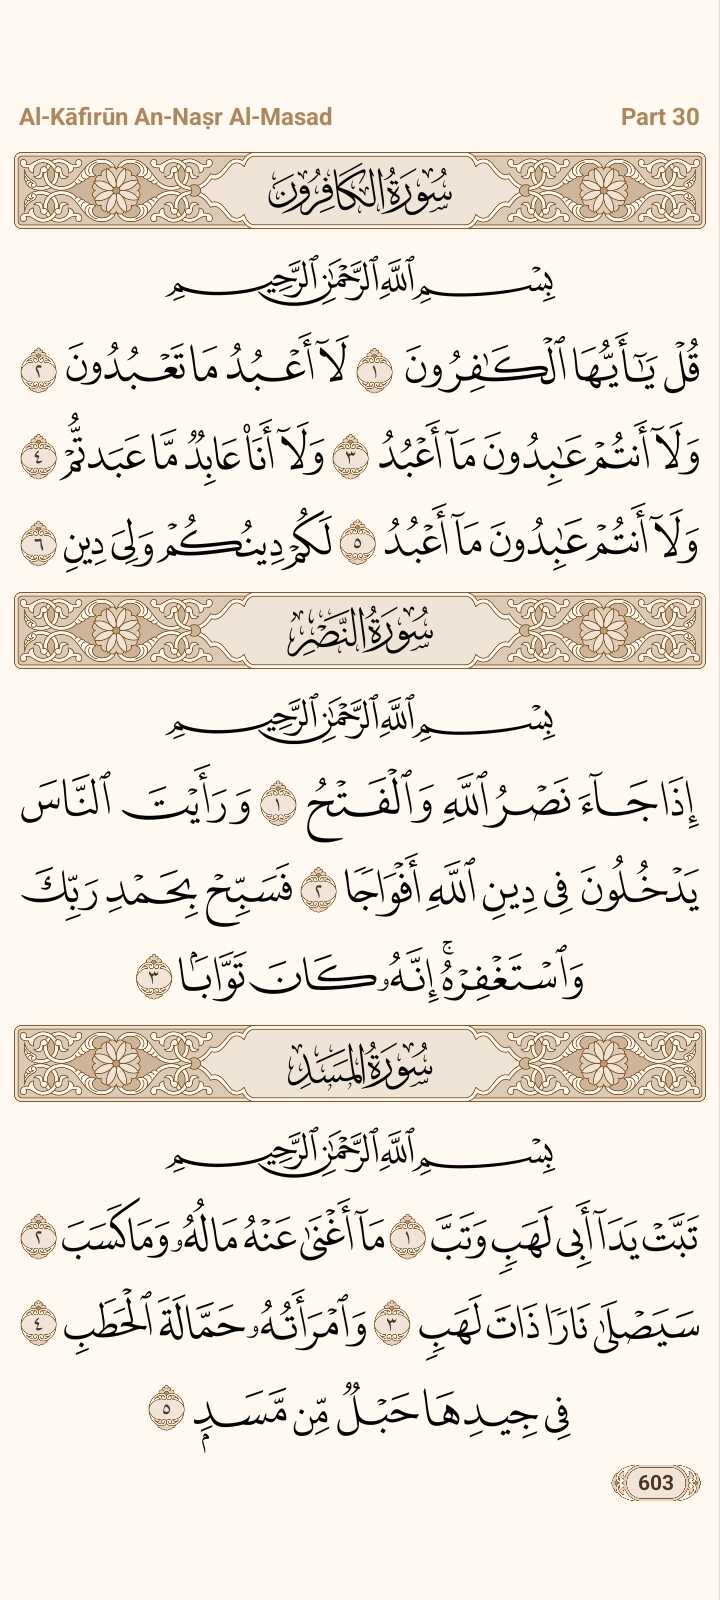 Al-Kāfirūn An-Naṣr Al-Masad Part 30
سُورَةُ الكَافِرُونَ
بِسْمِ ٱللَّهِ ٱلرَّحْمَٰنِ ٱلرَّحِيمِ
قُلْ يَٰٓأَيُّهَا ٱلْكَٰفِرُونَ ١ لَآ أَعْبُدُ مَا تَعْبُدُونَ ٢
وَلَآ أَنتُمْ عَٰبِدُونَ مَآ أَعْبُدُ ٣ وَلَآ أَنَا۠ عَابِدٌ مَّا عَبَدتُّمْ ٤
وَلَآ أَنتُمْ عَٰبِدُونَ مَآ أَعْبُدُ ٥ لَكُمْ دِينُكُمْ وَلِىَ دِينِ ٦
سُورَةُ النَّصْرِ
بِسْمِ ٱللَّهِ ٱلرَّحْمَٰنِ ٱلرَّحِيمِ
إِذَا جَآءَ نَصْرُ ٱللَّهِ وَٱلْفَتْحُ ١ وَرَأَيْتَ ٱلنَّاسَ
يَدْخُلُونَ فِى دِينِ ٱللَّهِ أَفْوَاجًا ٢ فَسَبِّحْ بِحَمْدِ رَبِّكَ
وَٱسْتَغْفِرْهُ ۚ إِنَّهُۥ كَانَ تَوَّابًۢا ٣
سُورَةُ المَسَدِ
بِسْمِ ٱللَّهِ ٱلرَّحْمَٰنِ ٱلرَّحِيمِ
تَبَّتْ يَدَآ أَبِى لَهَبٍ وَتَبَّ ١ مَآ أَغْنَىٰ عَنْهُ مَالُهُۥ وَمَا كَسَبَ ٢
سَيَصْلَىٰ نَارًا ذَاتَ لَهَبٍ ٣ وَٱمْرَأَتُهُۥ حَمَّالَةَ ٱلْحَطَبِ ٤
فِى جِيدِهَا حَبْلٌ مِّن مَّسَدٍۭ ٥
603